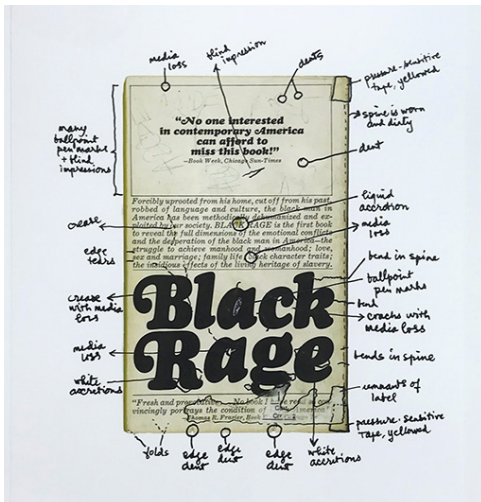 media
loss
blind
impression
dents
pressure-sensitive
tape, yellowed
spine is worn
and dirty
many
ballpoint
pen marks
+ blind
impressions
dent
“No one interested
in contemporary America
can afford to
miss this book!”
—Book Week, Chicago Sun-Times
liquid
accretion
media
loss
Forcibly uprooted from his home, cut off from his past,
robbed of language and culture, the black man in
America has been methodically dehumanized and ex-
ploited by our society. BLACK RAGE is the first book
to reveal the full dimensions of the emotional conflicts
and the desperation of the black man in America—the
struggle to achieve manhood and womanhood; love,
sex and marriage; family life; black character traits;
the insidious effects of the living heritage of slavery.
crease
edge
tears
bend in spine
ballpoint
pen marks
crease
with media
loss
Black
Rage
bend
cracks with
media loss
media
loss
bends in spine
white
accretions
remnants of
label
“Fresh and provocative... No book I have read so con-
vincingly portrays the condition of America”
—Thomas R. Frazier, Book
pressure-sensitive
tape, yellowed
folds
edge
dent
edge
dent
edge
dent
white
accretions